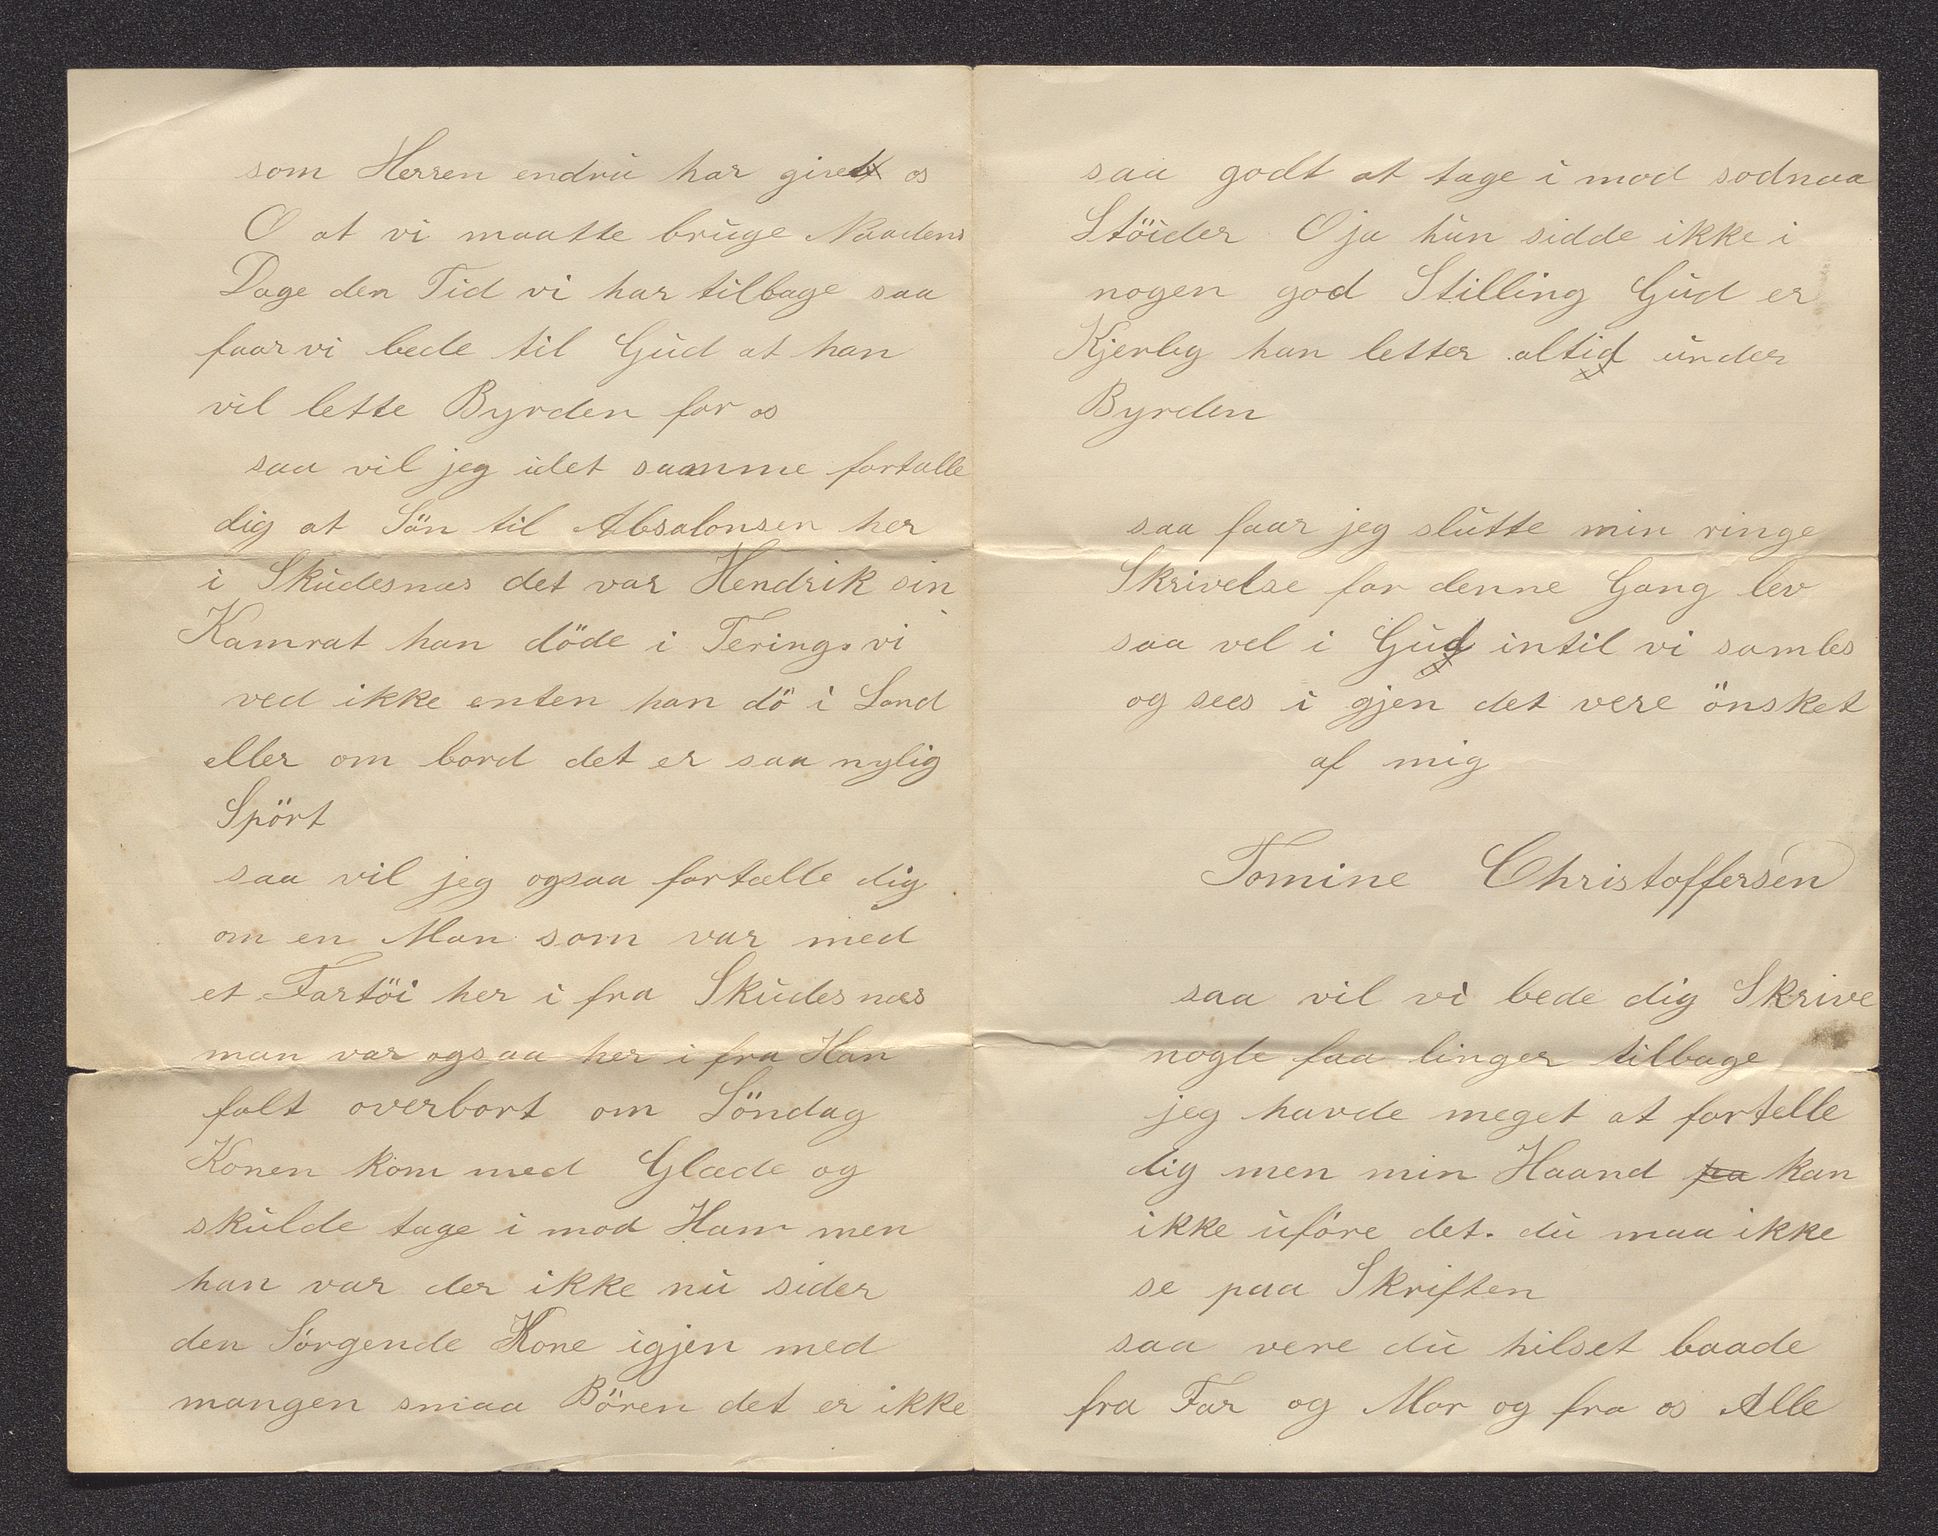 som Herren endnu har givet os
O at vi maatte bruge Naadens
Dage den Tid vi har tilbage saa
faar vi bede til Gud at han
vil lette Byrden for os
saa vil jeg idet saamme fortalle
dig at Sön til Absalonsen her
i Skudesnæs det var Hendrik sin
Kamrat han döde i Tering. vi
ved ikke enten han dö i Land
eller om bord det er saa nylig
Spört
saa vil jeg ogsaa fortælle dig
om en Man som var med
et Fartöi her i fra Skudesnæs
man var ogsaa her i fra Han
falt overbort om Söndag
Konen kom med Glæde og
skulde tage i mod Ham men
han var der ikke nu sider
den Sörgende Kone igjen med
mangen smaa Bören det er ikke
saa godt at tage i mod sodnaa
Stöider O ja hun sidde ikke i
nogen god Stilling Gud er
Kjerlig han letter altid under
Byrden
saa faar jeg slutte min ringe
Skrivelse for denne Gang lev
saa vel i Gud intil vi samles
og sees i gjen det vere önsket
af mig
Tomine Christoffersen
saa vil vi bede dig Skrive
nogle faa linger tilbage
jeg havde meget at fortelle
dig men min Haand pa kan
ikke uföre det. du maa ikke
se paa Skriften
saa vere du hilset baade
fra Far og Mor og fra os Alle